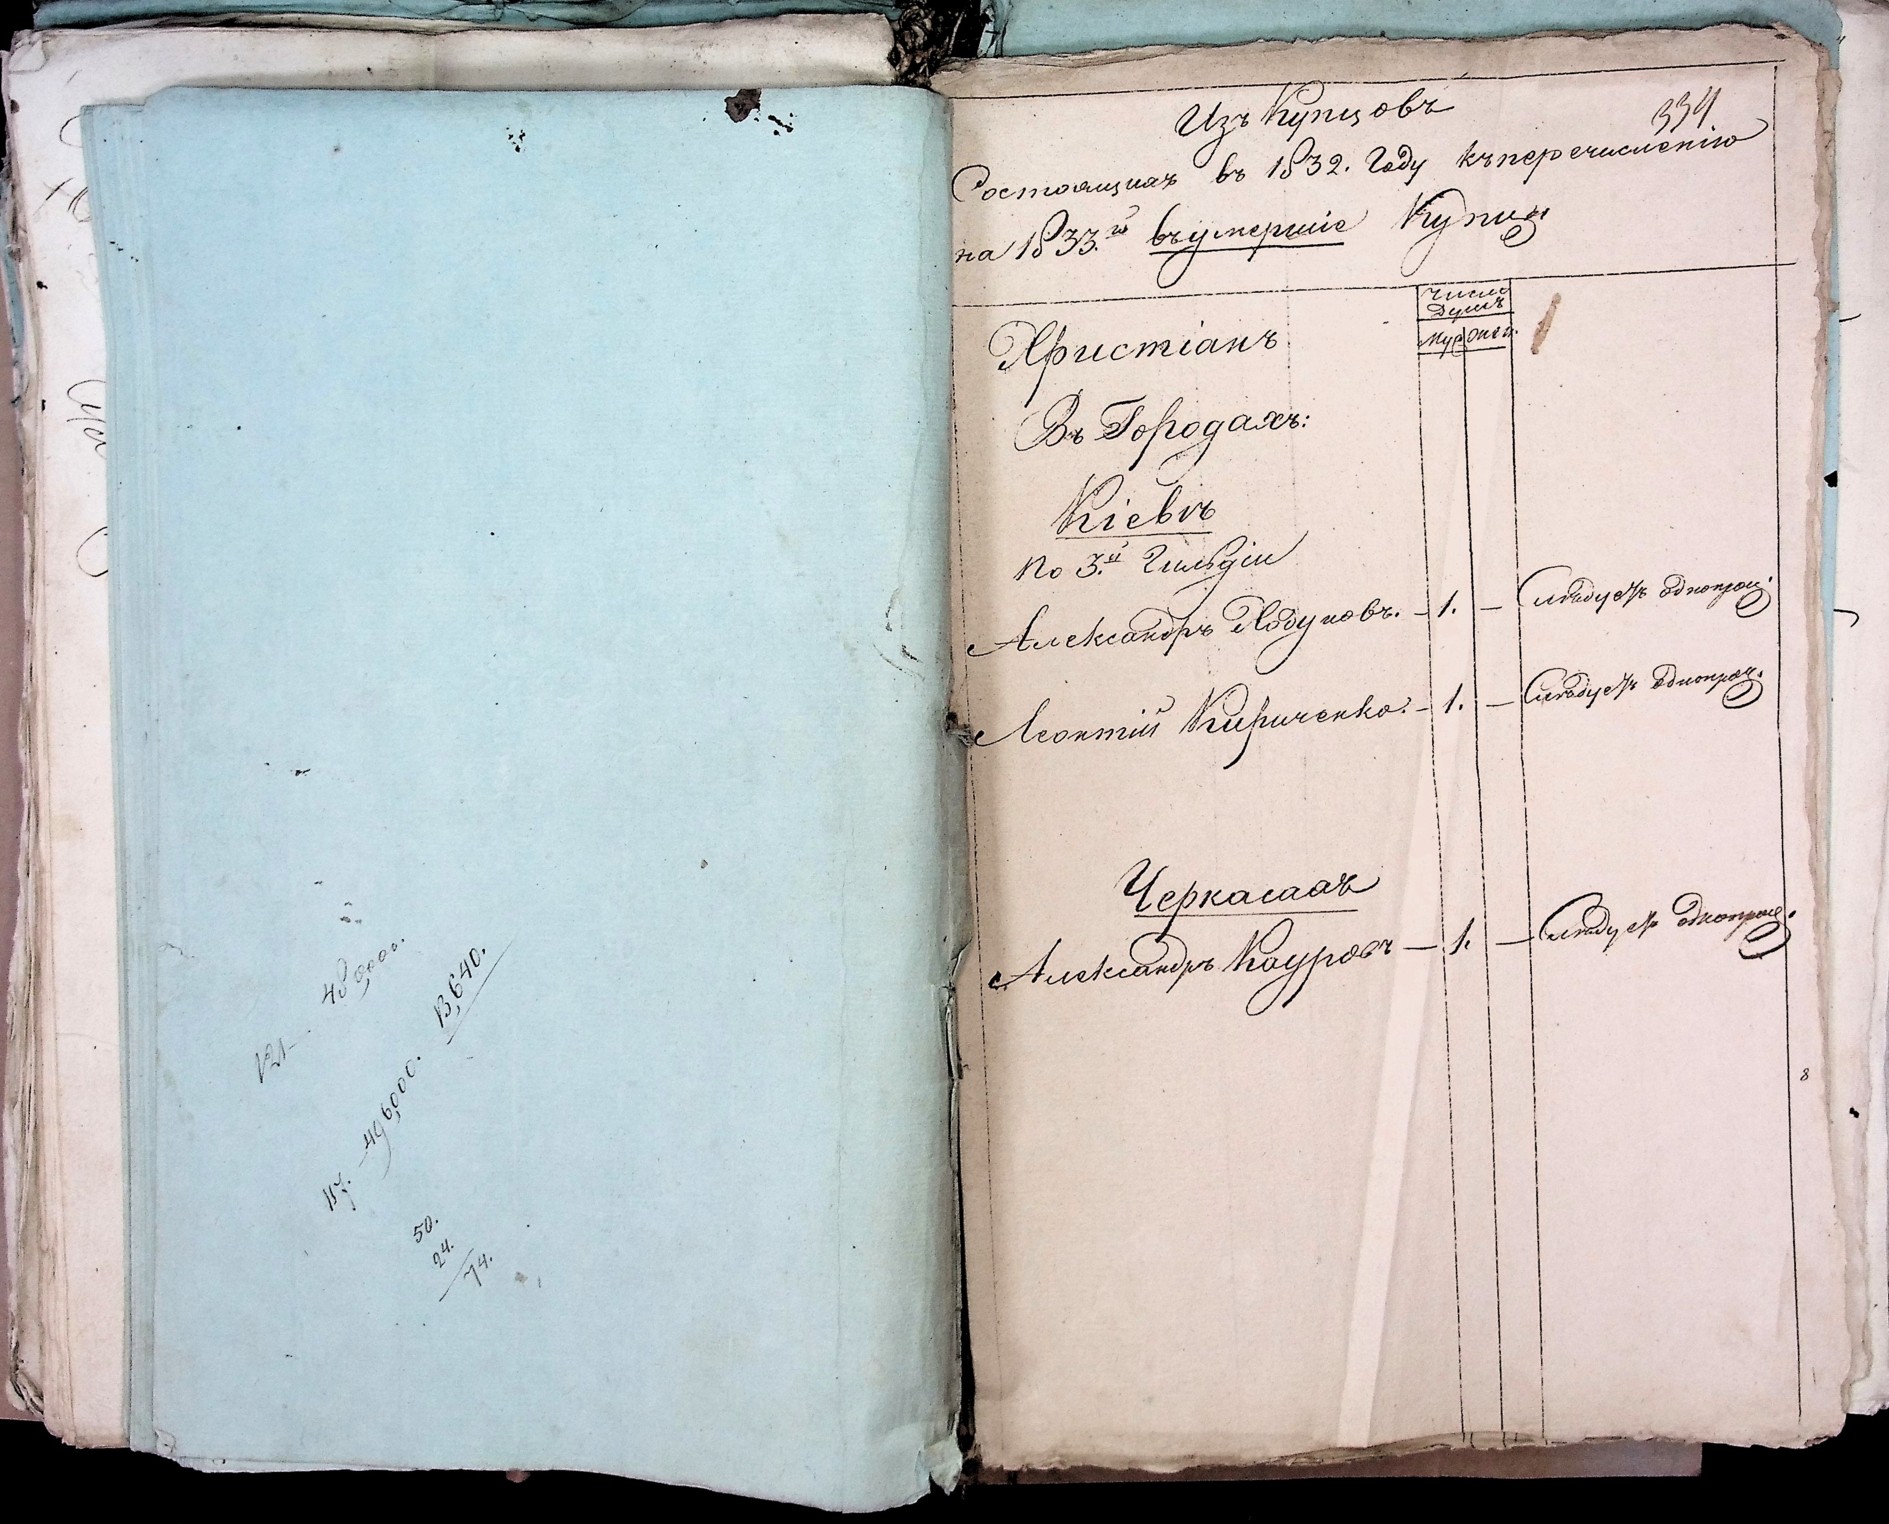 48,000.
121 –
13,640.
117. – 496,000.
50.
24.
74.
334
Изъ Купцовъ
Состоящихъ въ 1832. Году къ перечисленію
на 1833.й въ умершіе Купц:
Число
Душъ
Муж Жен.
Христіанъ
Въ Городахъ:
Кіевѣ
По 3.й Гильдіи
Александръ Ходуновъ. – 1. – Слѣдуетъ однопроц:
Леонтій Кириченко. – 1. – Слѣдуетъ однопроц:
Черкасахъ
Александръ Кауровъ – 1. – Слѣдуетъ однопроц:
8